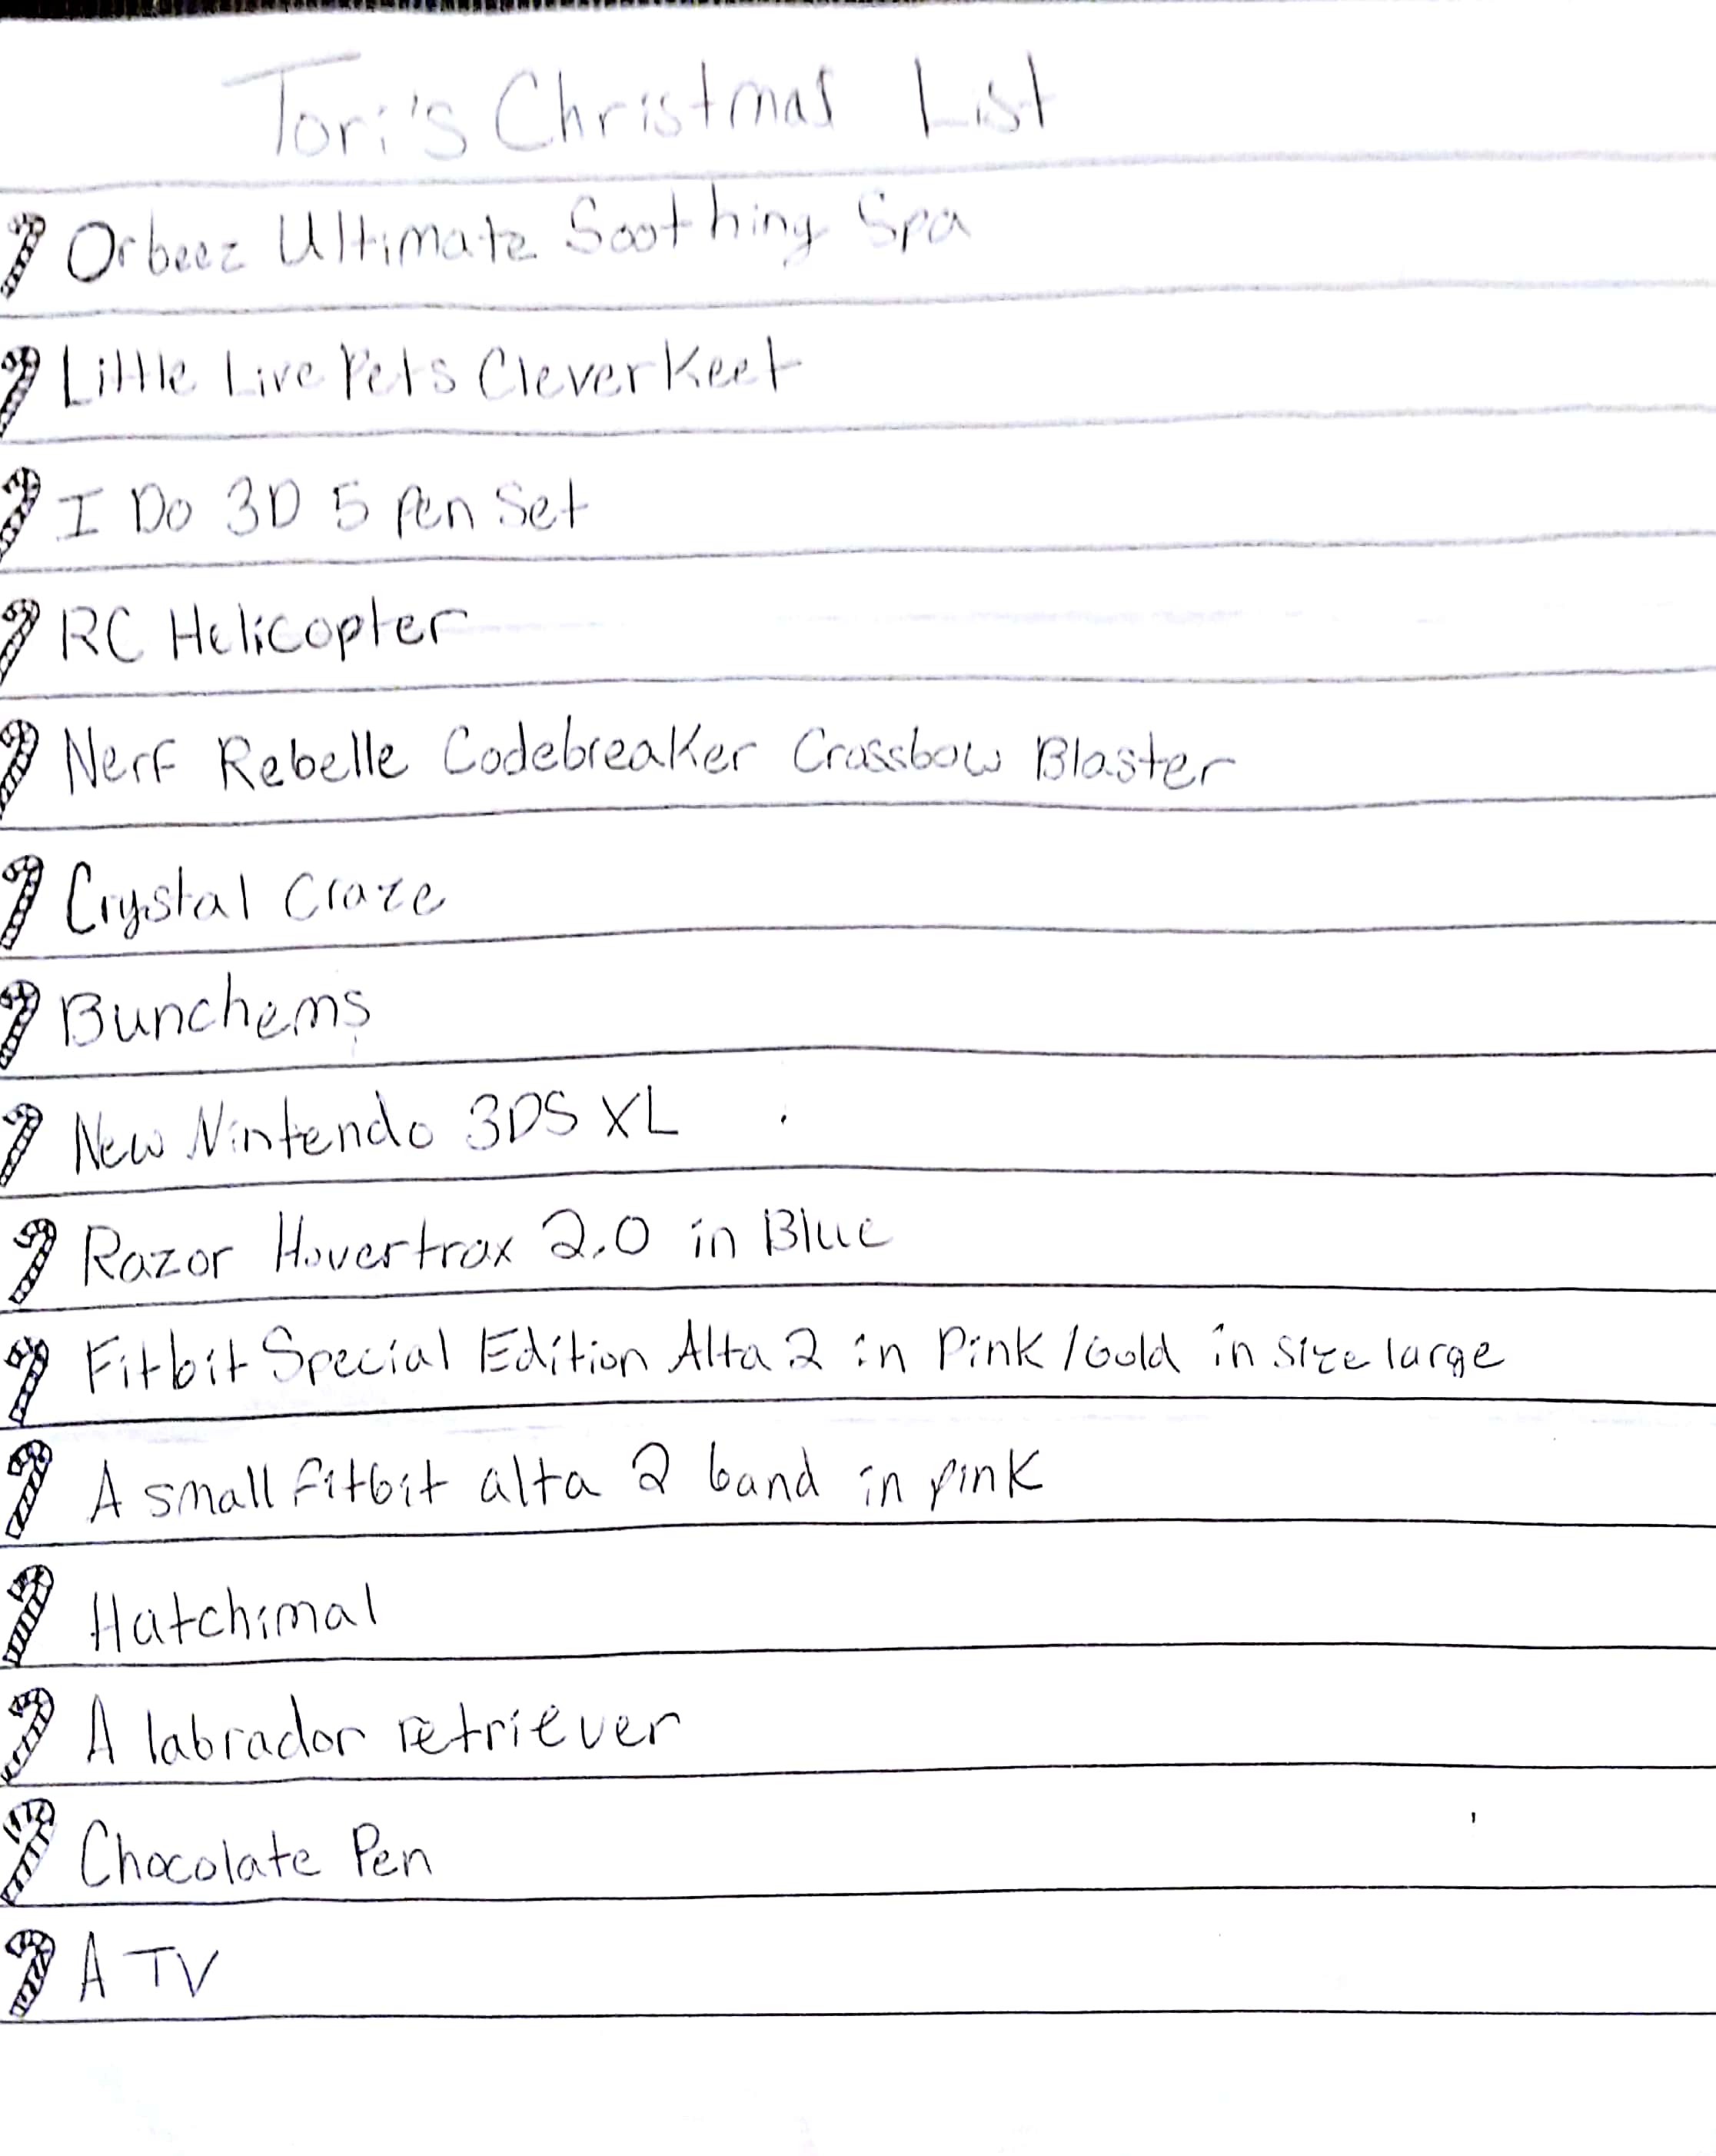 Tori's Christmas List
Orbeez Ultimate Soothing Spa
Little Live Pets Clever Keet
I Do 3D 5 Pen Set
RC Helicopter
Nerf Rebelle Codebreaker Crossbow Blaster
Crystal Craze
Bunchems
New Nintendo 3DS XL
Razor Hovertrax 2.0 in Blue
Fitbit Special Edition Alta 2 in Pink/Gold in size large
A small fitbit alta 2 band in pink
Hatchimal
A labrador retriever
Chocolate Pen
A TV